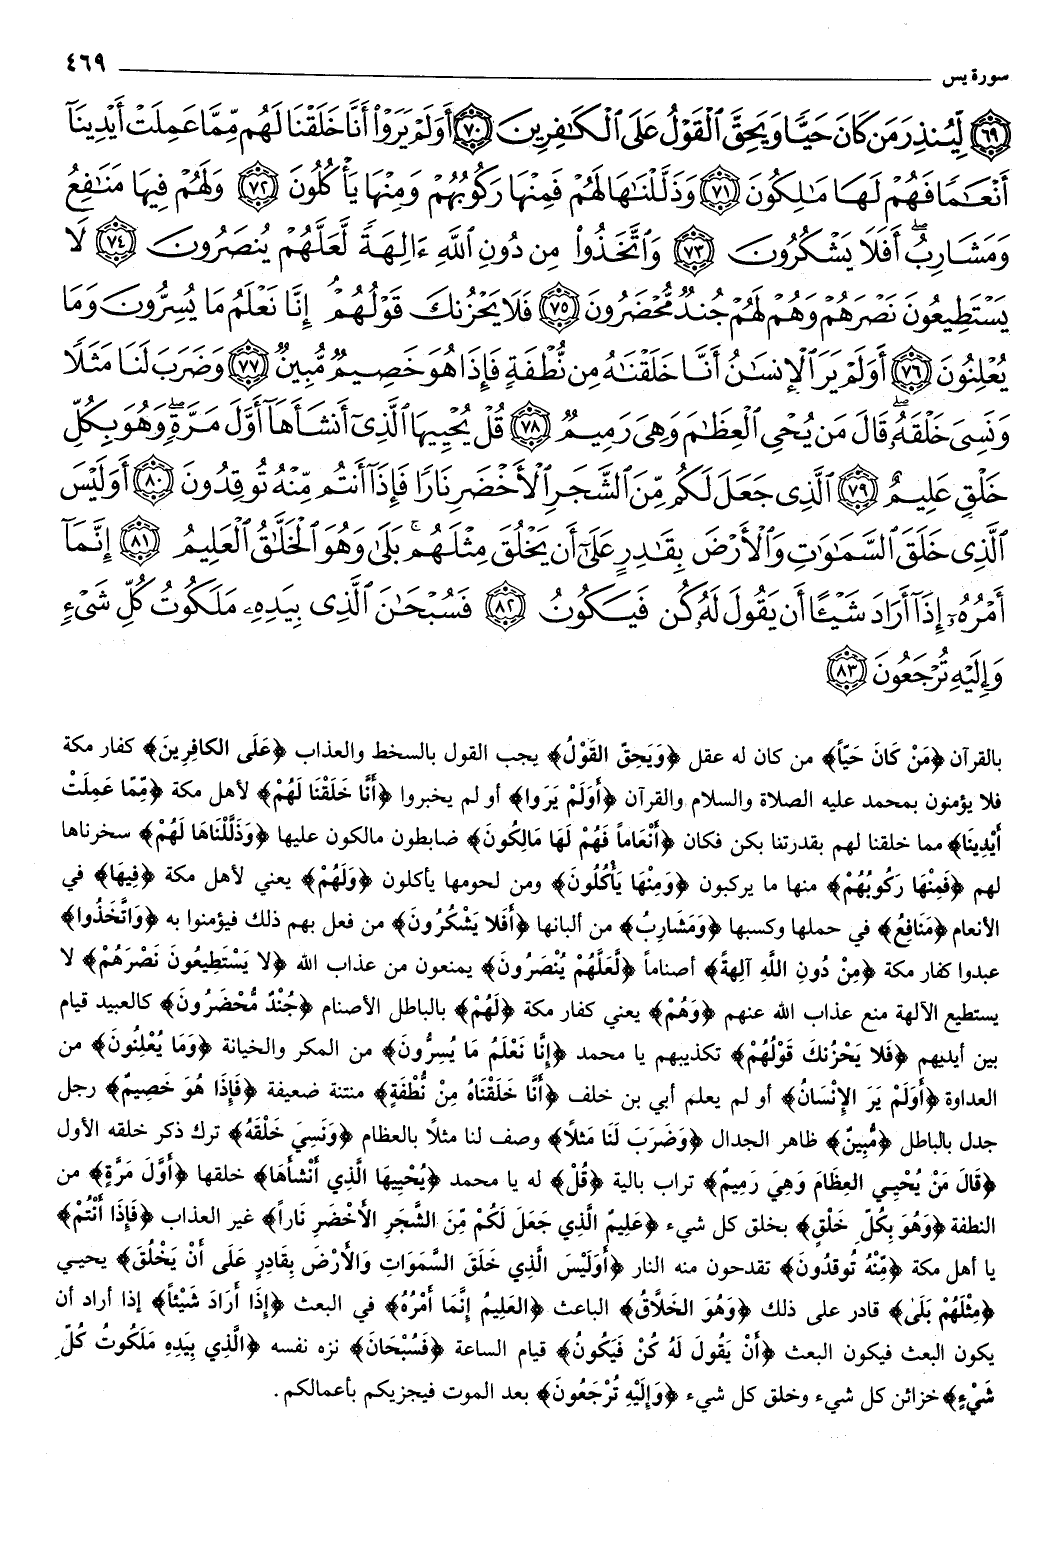 سورة يس ٤٦٩
٦٩ لِّيُنذِرَ مَن كَانَ حَيًّا وَيَحِقَّ ٱلْقَوْلُ عَلَى ٱلْكَٰفِرِينَ ٧٠ أَوَلَمْ يَرَوْا۟ أَنَّا خَلَقْنَا لَهُم مِّمَّا عَمِلَتْ أَيْدِينَآ
أَنْعَٰمًا فَهُمْ لَهَا مَٰلِكُونَ ٧١ وَذَلَّلْنَٰهَا لَهُمْ فَمِنْهَا رَكُوبُهُمْ وَمِنْهَا يَأْكُلُونَ ٧٢ وَلَهُمْ فِيهَا مَنَٰفِعُ
وَمَشَارِبُ ۖ أَفَلَا يَشْكُرُونَ ٧٣ وَٱتَّخَذُوا۟ مِن دُونِ ٱللَّهِ ءَالِهَةً لَّعَلَّهُمْ يُنصَرُونَ ٧٤ لَا
يَسْتَطِيعُونَ نَصْرَهُمْ وَهُمْ لَهُمْ جُندٌ مُّحْضَرُونَ ٧٥ فَلَا يَحْزُنكَ قَوْلُهُمْ ۘ إِنَّا نَعْلَمُ مَا يُسِرُّونَ وَمَا
يُعْلِنُونَ ٧٦ أَوَلَمْ يَرَ ٱلْإِنسَٰنُ أَنَّا خَلَقْنَٰهُ مِن نُّطْفَةٍ فَإِذَا هُوَ خَصِيمٌ مُّبِينٌ ٧٧ وَضَرَبَ لَنَا مَثَلًا
وَنَسِىَ خَلْقَهُۥ ۖ قَالَ مَن يُحْىِ ٱلْعِظَٰمَ وَهِىَ رَمِيمٌ ٧٨ قُلْ يُحْيِيهَا ٱلَّذِىٓ أَنشَأَهَآ أَوَّلَ مَرَّةٍ ۖ وَهُوَ بِكُلِّ
خَلْقٍ عَلِيمٌ ٧٩ ٱلَّذِى جَعَلَ لَكُم مِّنَ ٱلشَّجَرِ ٱلْأَخْضَرِ نَارًا فَإِذَآ أَنتُم مِّنْهُ تُوقِدُونَ ٨٠ أَوَلَيْسَ
ٱلَّذِى خَلَقَ ٱلسَّمَٰوَٰتِ وَٱلْأَرْضَ بِقَٰدِرٍ عَلَىٰٓ أَن يَخْلُقَ مِثْلَهُم ۚ بَلَىٰ وَهُوَ ٱلْخَلَّٰقُ ٱلْعَلِيمُ ٨١ إِنَّمَآ
أَمْرُهُۥٓ إِذَآ أَرَادَ شَيْـًٔا أَن يَقُولَ لَهُۥ كُن فَيَكُونُ ٨٢ فَسُبْحَٰنَ ٱلَّذِى بِيَدِهِۦ مَلَكُوتُ كُلِّ شَىْءٍ
وَإِلَيْهِ تُرْجَعُونَ ٨٣
بالقرآن ﴿مَنْ كَانَ حَيّاً﴾ من كان له عقل ﴿وَيَحِقَّ القَوْلُ﴾ يجب القول بالسخط والعذاب ﴿عَلَى الكافِرِينَ﴾ كفار مكة
فلا يؤمنون بمحمد عليه الصلاة والسلام والقرآن ﴿أَوَلَمْ يَرَوا﴾ أو لم يخبروا ﴿أَنَّا خَلَقْنَا لَهُمْ﴾ لأهل مكة ﴿مِّمّا عَمِلَتْ
أَيْدِينَا﴾ مما خلقنا لهم بقدرتنا بكن فكان ﴿أَنْعَاماً فَهُمْ لَهَا مَالِكُونَ﴾ ضابطون مالكون عليها ﴿وَذَلَّلْنَاهَا لَهُمْ﴾ سخرناها
لهم ﴿فَمِنْهَا رَكُوبُهُمْ﴾ منها ما يركبون ﴿وَمِنْهَا يَأْكُلُونَ﴾ ومن لحومها يأكلون ﴿وَلَهُمْ﴾ يعني لأهل مكة ﴿فِيهَا﴾ في
الأنعام ﴿مَنَافِعُ﴾ في حملها وكسبها ﴿وَمَشَارِبُ﴾ من ألبانها ﴿أَفَلا يَشْكُرُونَ﴾ من فعل بهم ذلك فيؤمنوا به ﴿وَاتَّخَذُوا﴾
عبدوا كفار مكة ﴿مِنْ دُونِ اللَّهِ آلِهةً﴾ أصناماً ﴿لَّعَلَّهُمْ يُنْصَرُونَ﴾ يمنعون من عذاب الله ﴿لا يَسْتَطِيعُونَ نَصْرَهُمْ﴾ لا
يستطيع الآلهة منع عذاب الله عنهم ﴿وَهُمْ﴾ يعني كفار مكة ﴿لَهُمْ﴾ بالباطل الأصنام ﴿جُنْدٌ مُّحْضَرُونَ﴾ كالعبيد قيام
بين أيديهم ﴿فَلا يَحْزُنكَ قَوْلُهُمْ﴾ تكذيبهم يا محمد ﴿إِنَّا نَعْلَمُ مَا يُسِرُّونَ﴾ من المكر والخيانة ﴿وَمَا يُعْلِنُونَ﴾ من
العداوة ﴿أَوَلَمْ يَرَ الإِنْسَانُ﴾ أو لم يعلم أبي بن خلف ﴿أَنَّا خَلَقْنَاهُ مِنْ نُّطْفَةٍ﴾ منتنة ضعيفة ﴿فَإِذَا هُوَ خَصِيمٌ﴾ رجل
جدل بالباطل ﴿مُّبِينٌ﴾ ظاهر الجدال ﴿وَضَرَبَ لَنَا مَثَلاً﴾ وصف لنا مثلاً بالعظام ﴿وَنَسِيَ خَلْقَهُ﴾ ترك ذكر خلقه الأول
﴿قَالَ مَنْ يُحْيِي العِظَامَ وَهِيَ رَمِيمٌ﴾ تراب بالية ﴿قُلْ﴾ له يا محمد ﴿يُحْيِيهَا الَّذِي أَنْشَأَهَا﴾ خلقها ﴿أَوَّلَ مَرَّةٍ﴾ من
النطفة ﴿وَهُوَ بِكُلِّ خَلْقٍ﴾ بخلق كل شيء ﴿عَلِيمٌ الَّذِي جَعَلَ لَكُمْ مِّنَ الشَّجَرِ الأَخْضَرِ نَاراً﴾ غير العذاب ﴿فَإِذَا أَنْتُمْ﴾
يا أهل مكة ﴿مِّنْهُ تُوقِدُونَ﴾ تقدحون منه النار ﴿أَوَلَيْسَ الَّذِي خَلَقَ السَّمَوَاتِ وَالأَرْضَ بِقَادِرٍ عَلَى أَنْ يَخْلُقَ﴾ يحيي
﴿مِثْلَهُمْ بَلَىٰ﴾ قادر على ذلك ﴿وَهُوَ الخَلَّاقُ﴾ الباعث ﴿العَلِيمُ إِنَّمَا أَمْرُهُ﴾ في البعث ﴿إِذَا أَرَادَ شَيْئاً﴾ إذا أراد أن
يكون البعث فيكون البعث ﴿أَنْ يَقُولَ لَهُ كُنْ فَيَكُونُ﴾ قيام الساعة ﴿فَسُبْحَانَ﴾ نزه نفسه ﴿الَّذِي بِيَدِهِ مَلَكُوتُ كُلِّ
شَيْءٍ﴾ خزائن كل شيء وخلق كل شيء ﴿وَإِلَيْهِ تُرْجَعُونَ﴾ بعد الموت فيجزيكم بأعمالكم.